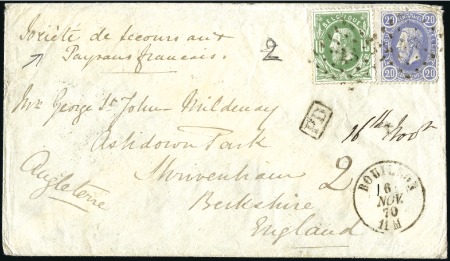 Société de secours aux
Paysans français.
2
BELGIQUE
20 20
Mr George St John Mildmay
PD
16th Novr
Ashdown Park
Shrivenham
2
Berkshire
England
Angleterre
BOUILLON
16
NOV.
70
11 M